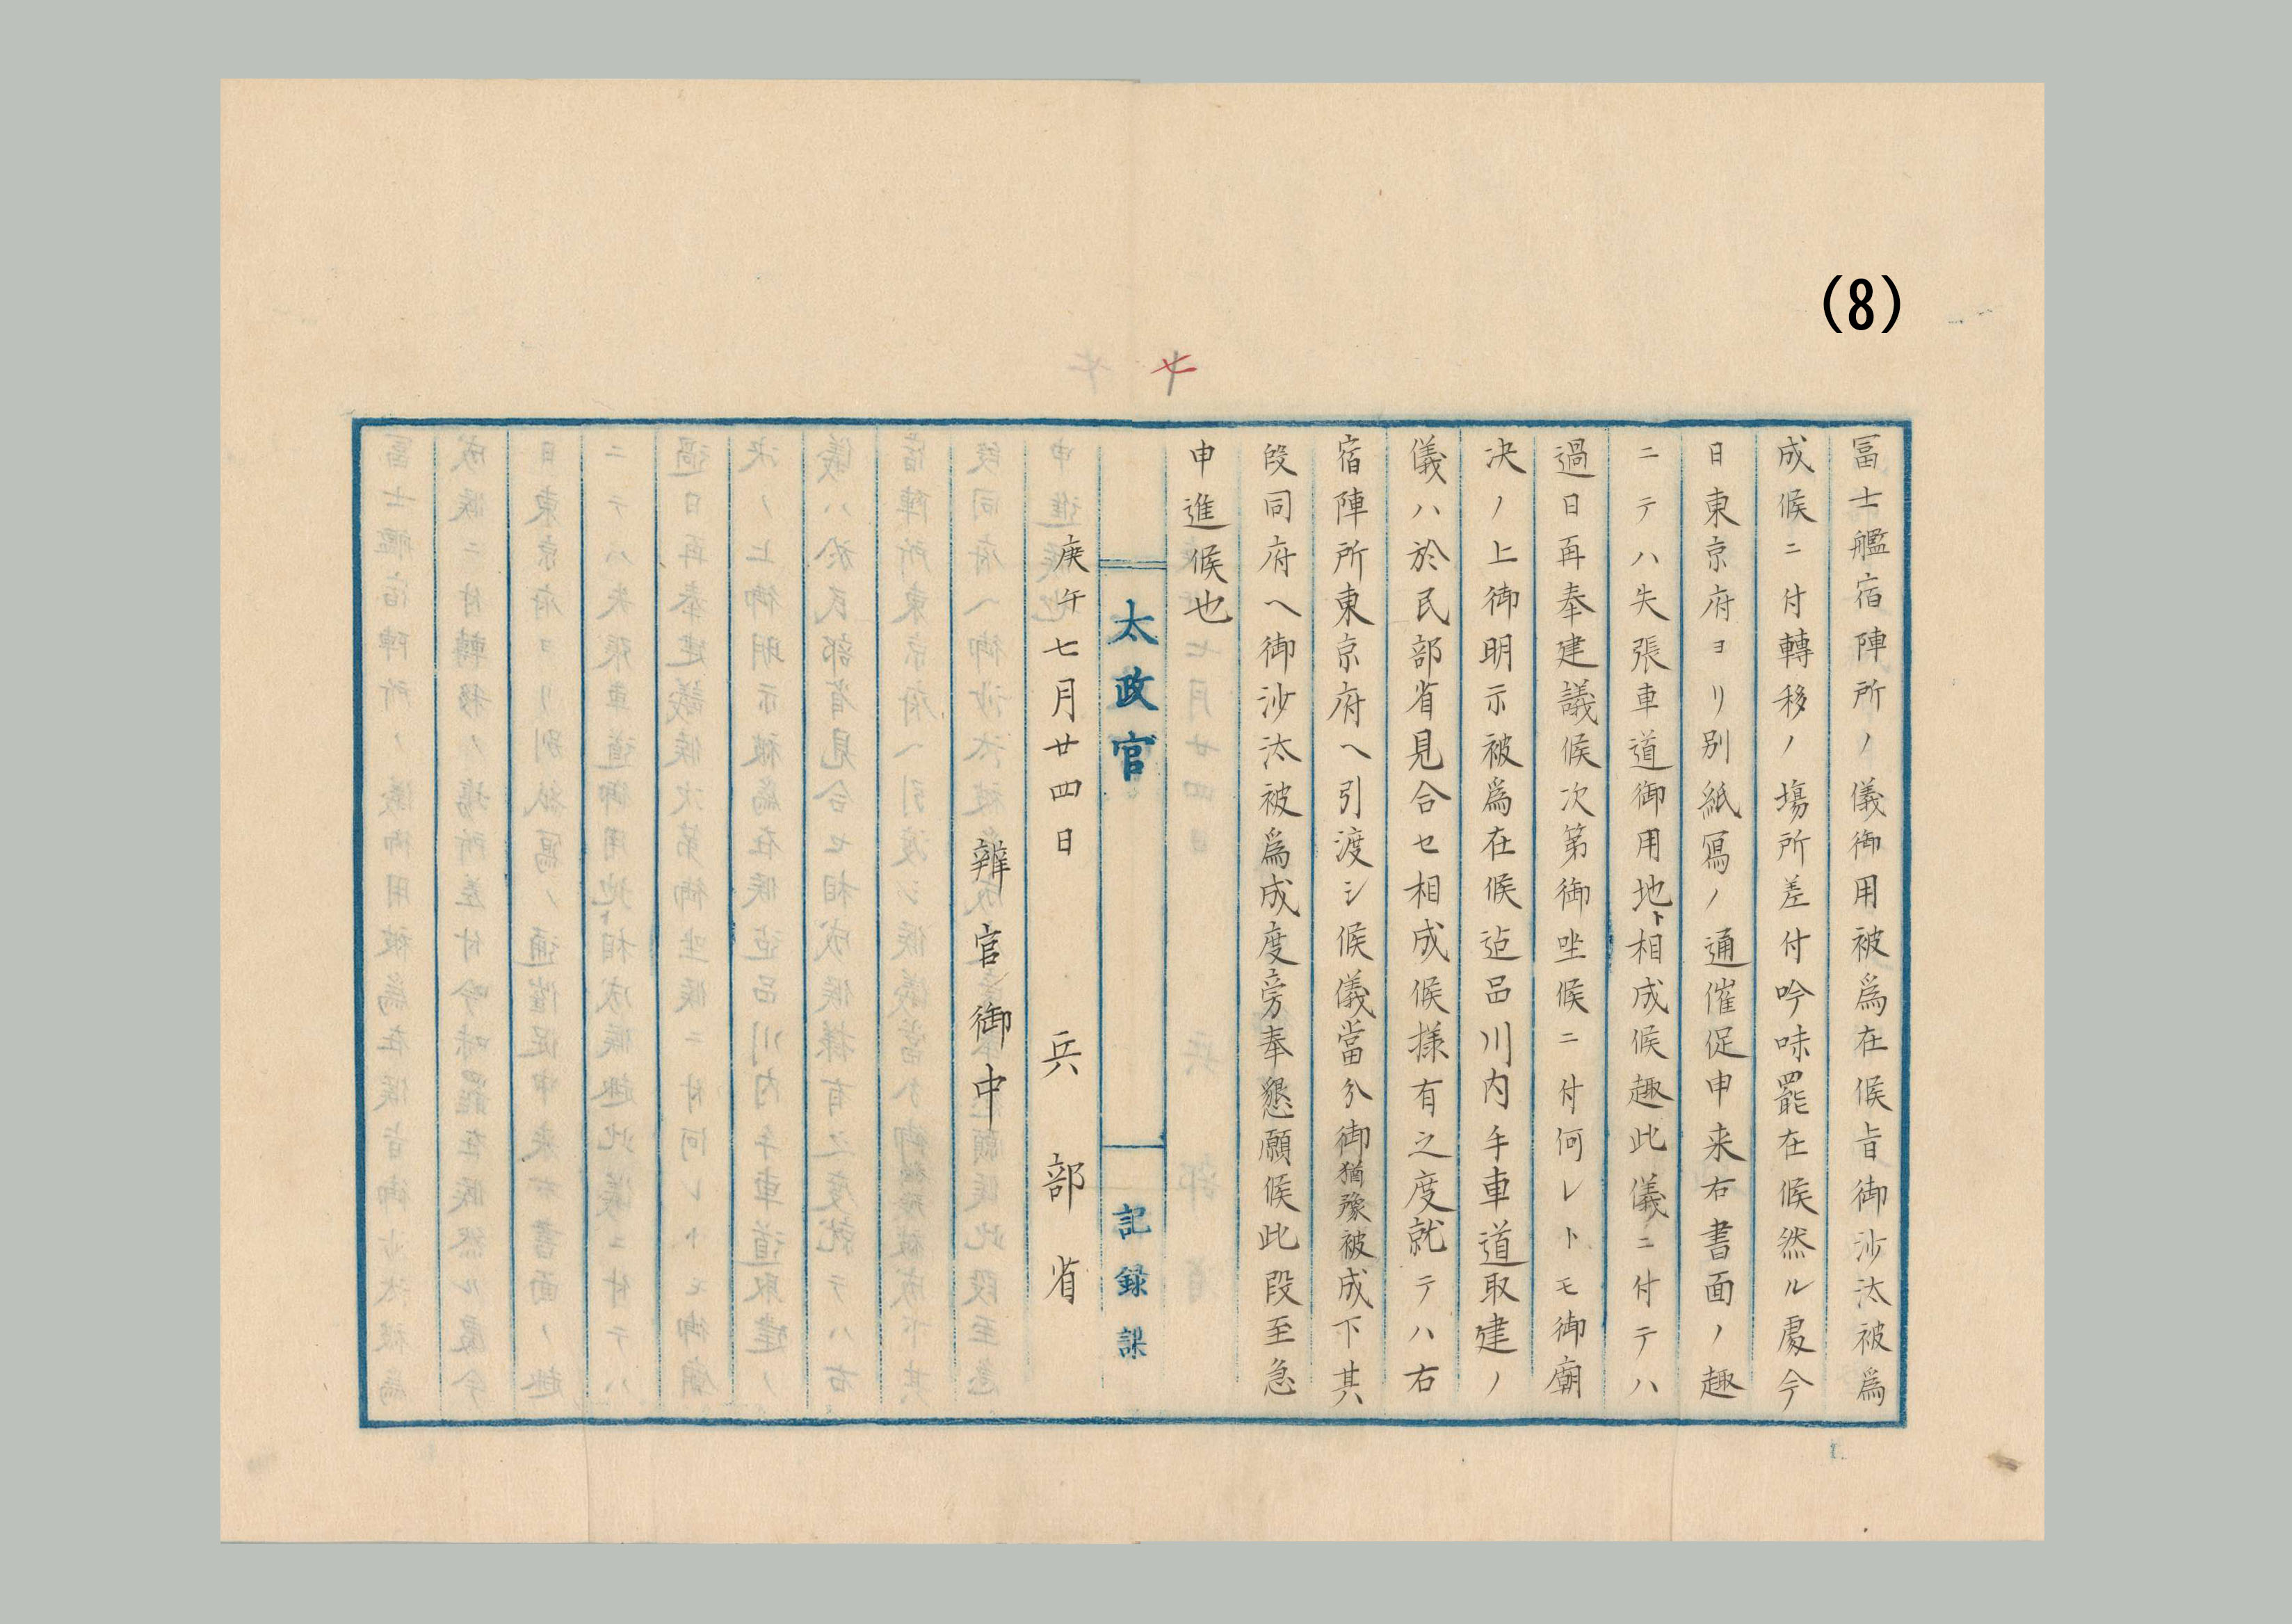 (8)
七
冨士艦宿陣所ノ儀御用被爲在候旨御沙汰被爲
成候ニ付轉移ノ塲所差付吟味罷在候然ル處今
日東京府ヨリ別紙寫ノ通催促申来右書面ノ趣
ニテハ失張車道御用地ト相成候趣此儀ニ付テハ
過日再奉建議候次第御坐候ニ付何レトモ御廟
决ノ上御明示被爲在候迠品川内手車道取建ノ
儀ハ於民部省見合セ相成候様有之度就テハ右
宿陣所東京府ヘ引渡シ候儀當分御猶豫被成下其
段同府ヘ御沙汰被爲成度旁奉懇願候此段至急
申進候也
太政官
記録課
庚午七月廿四日 兵部省
辨官御中